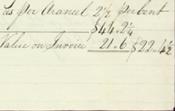 as per Arancel 2½ per Cent
$44.2½
Value on Invoice 21.6 $22.4½